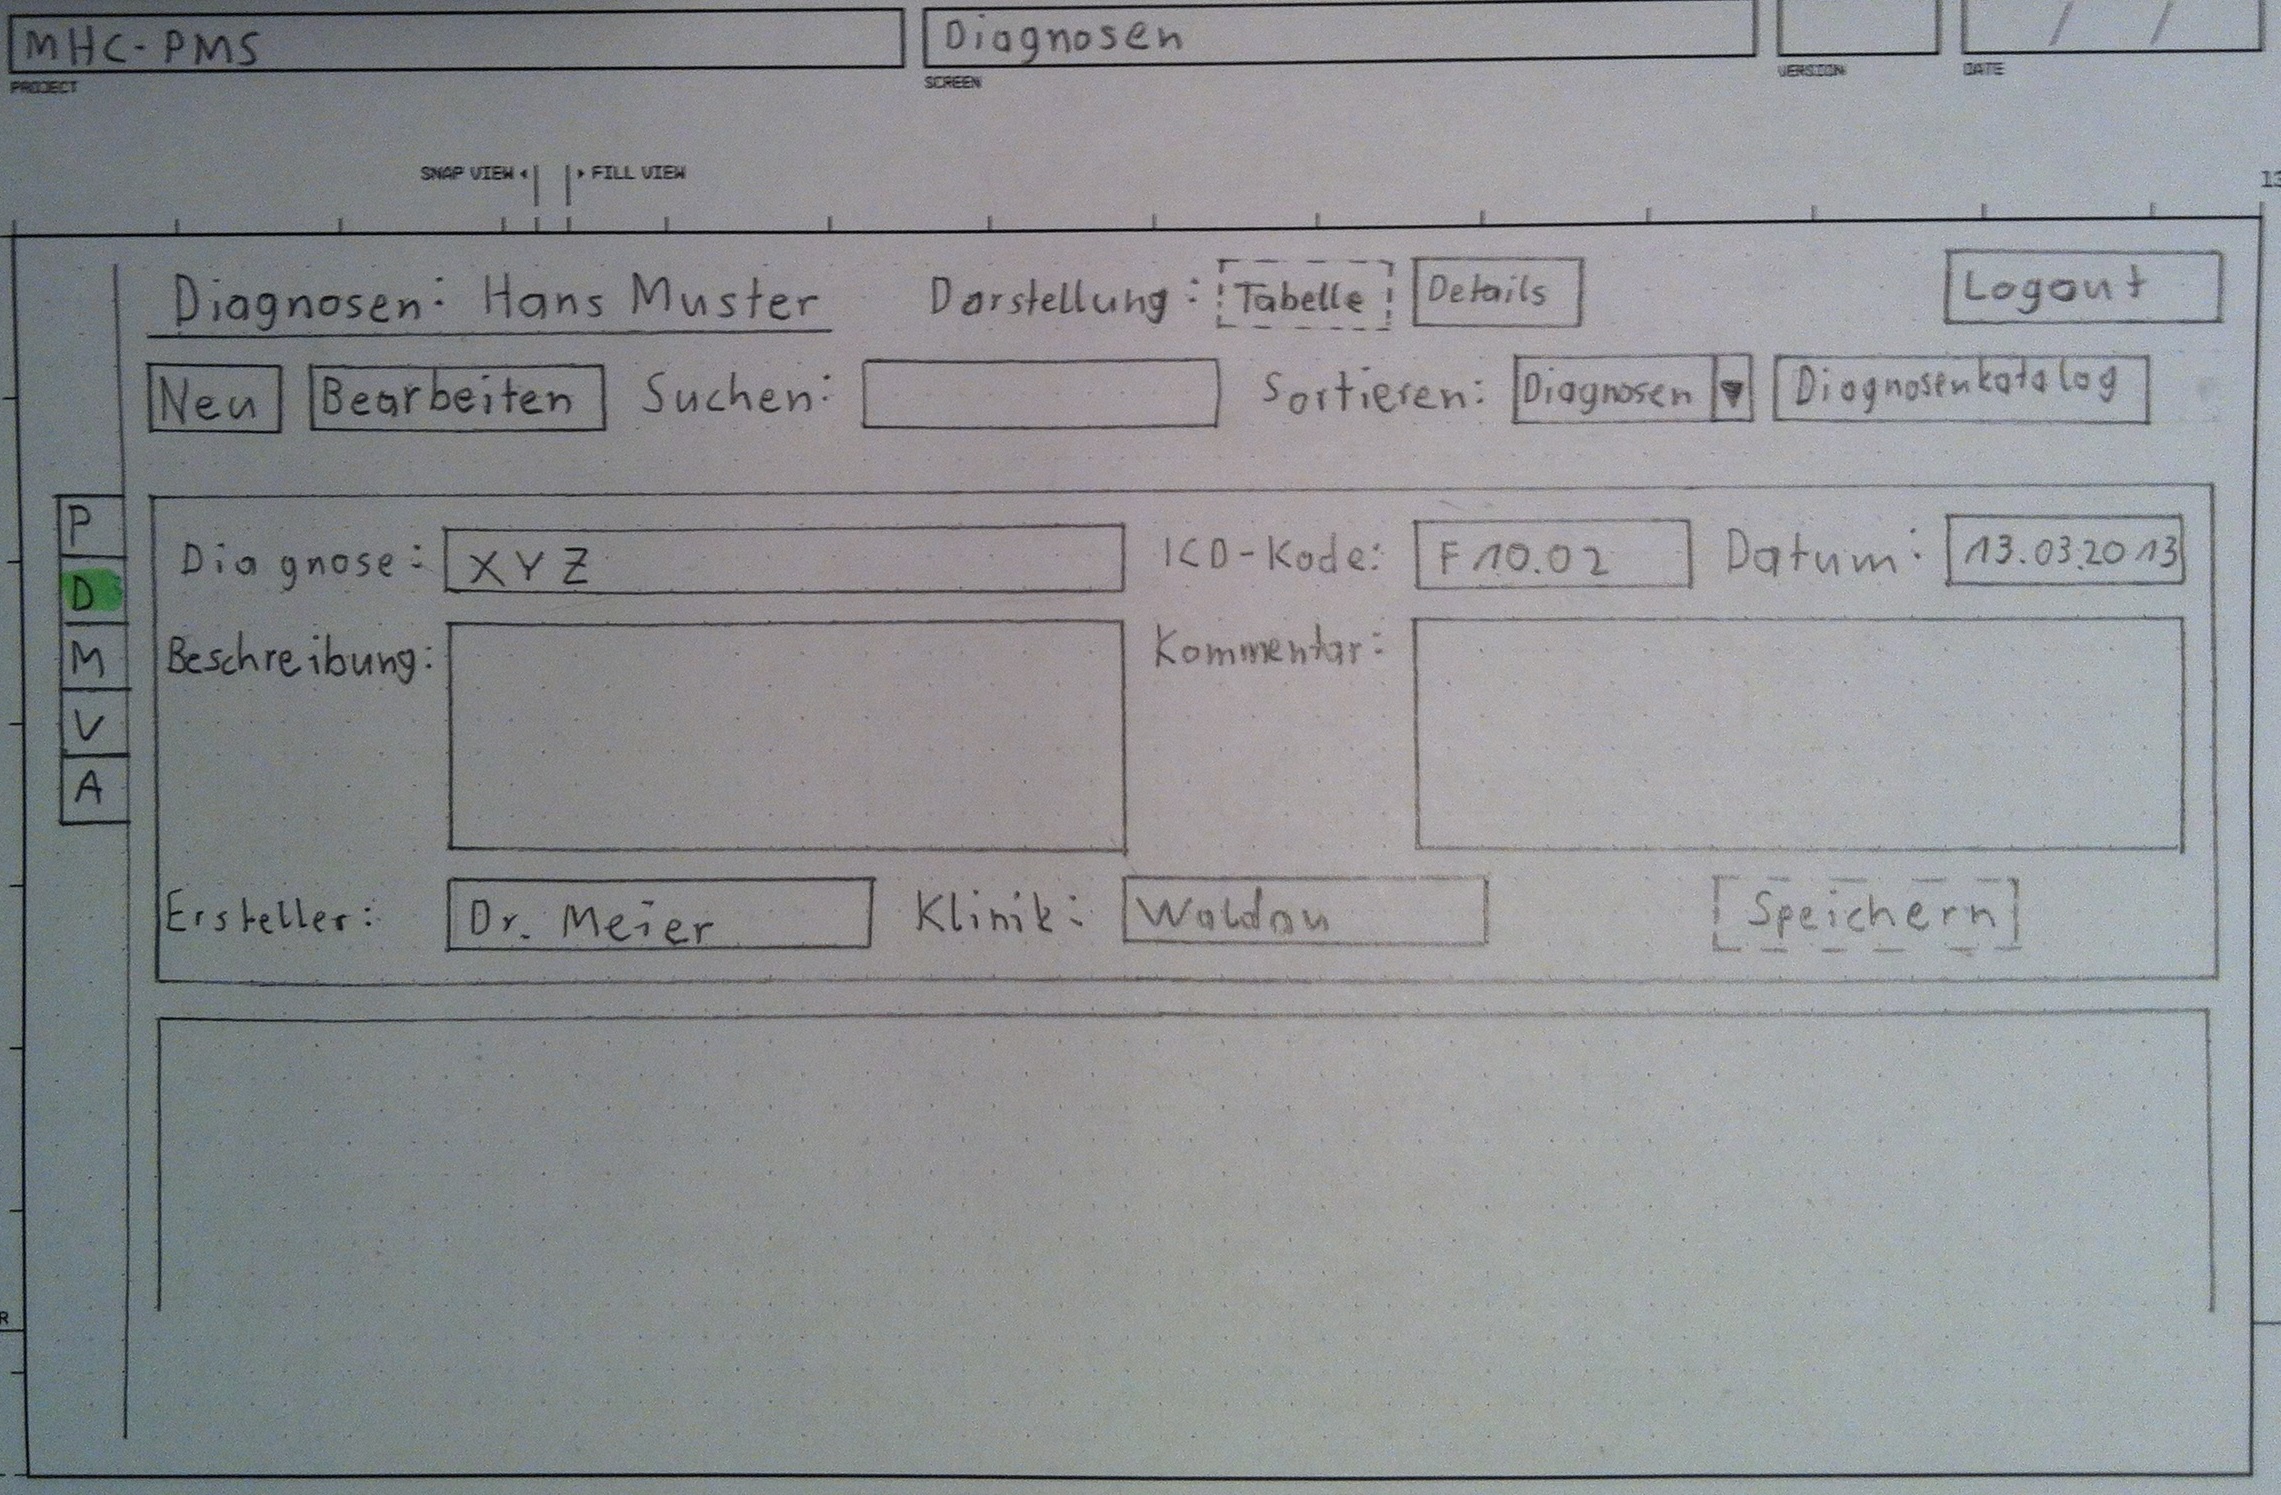 MHC-PMS Diagnosen
PROJECT SCREEN VERSION DATE
/ /
SNAP VIEW FILL VIEW
13
Diagnosen: Hans Muster Darstellung: Tabelle Details Logout
Neu Bearbeiten Suchen: Sortieren: Diagnosen ▼ Diagnosenkatalog
P
D
M
V
A
Diagnose: XYZ ICD-Kode: F10.02 Datum: 13.03.2013
Beschreibung: Kommentar:
Ersteller: Dr. Meier Klinik: Waldau Speichern
R